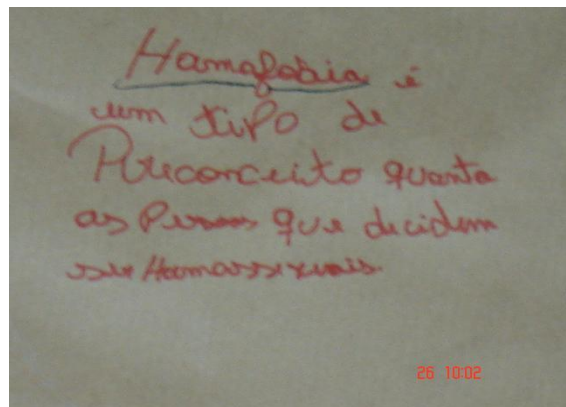 Homofobia é
um tipo de
Preconceito quanto
as Pessoas que decidem
ser Homossexuais.
26 10:02